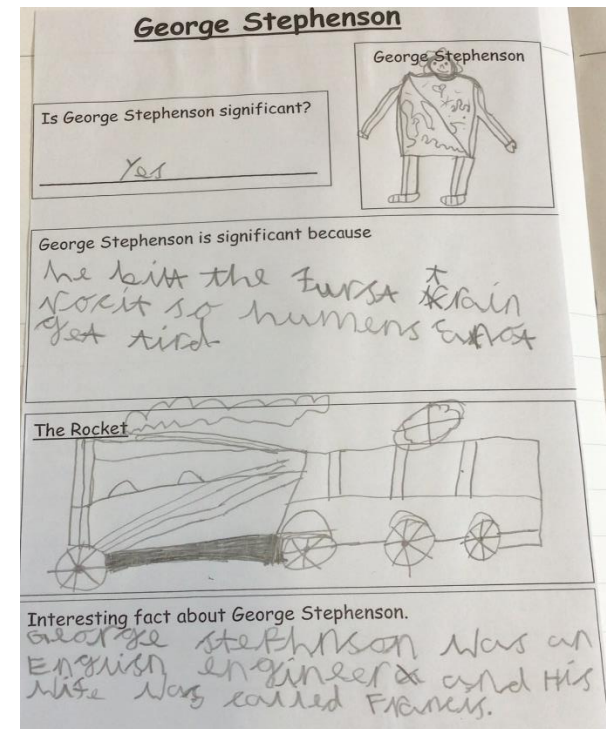 George Stephenson
George Stephenson
Is George Stephenson significant?
Yes
George Stephenson is significant because
he bilt the furst train
rocit so humens
get tird
The Rocket
Interesting fact about George Stephenson.
George stephnson was an
English engineer and His
wife was called Francis.